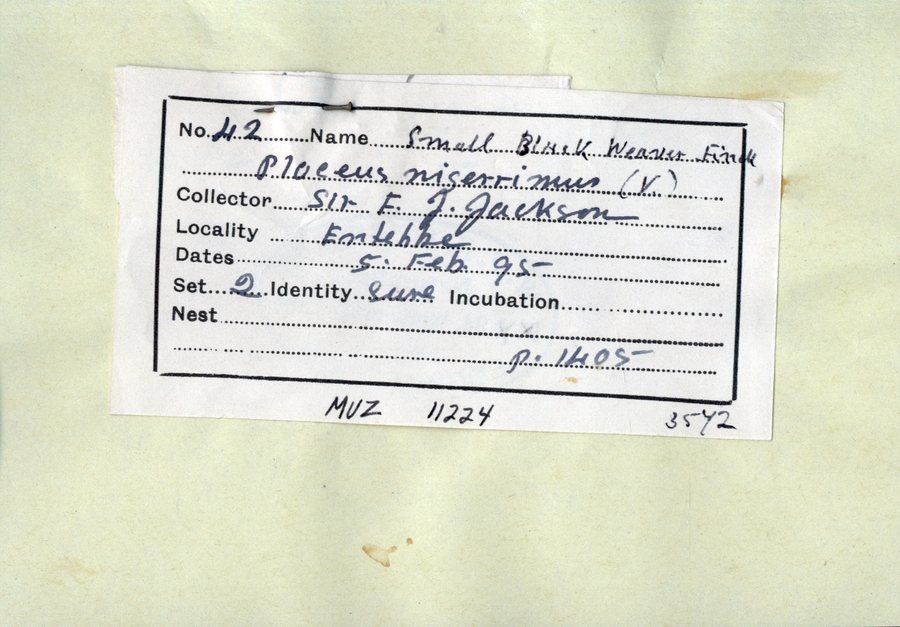 No. 42 Name Small Black Weaver Finch
Ploceus nigerrimus (V.)
Collector Sir F. J. Jackson
Locality Entebbe
Dates 5. Feb. 95
Set 2 Identity Sure Incubation
Nest
p. 1405
MUZ 11224 3542